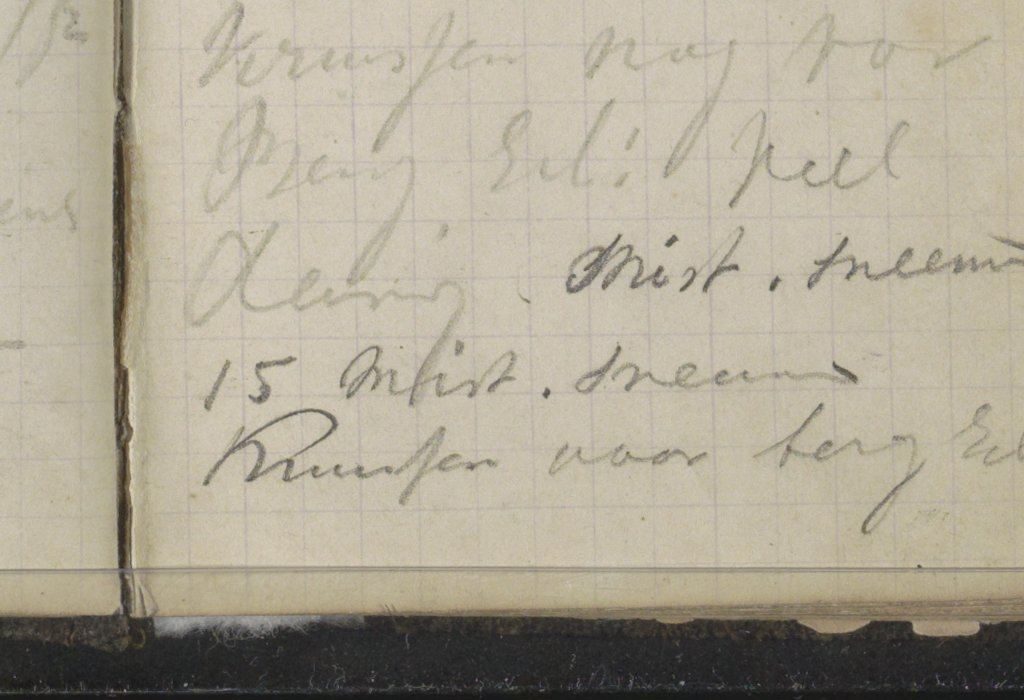 Kruissen nog vor
Berg Eil: veel
Mist. sneeuw
15 Mist. sneeuw
Kruissen voor berg Eil